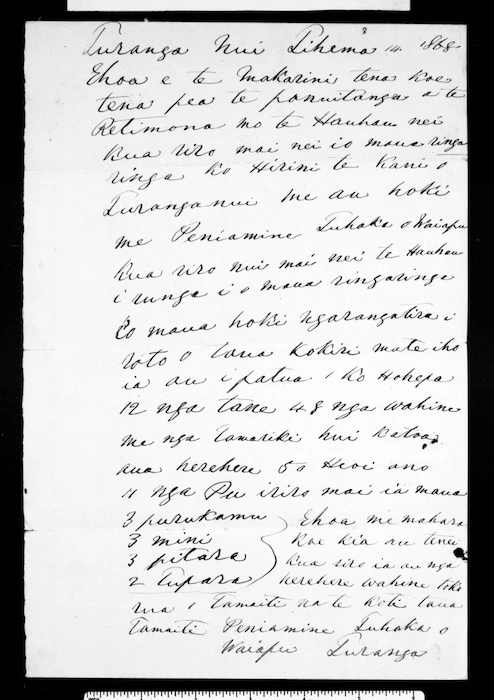 Turanga Nui Tihema 14 1868
Ehoa e te Makarini tena koe
tena pea te panuitanga a te
Retimona mo te Hauhau nei
kua riro mai nei i o maua ringa
ringa ko Hirini te Kani o
Turanganui me au hoki
me Peniamine Tuhaka o Waiapu
kua riro nui mai nei te Hauhau
i runga i o maua ringaringa
Ko maua hoki ngarangatira i
roto o taua kokiri mate iho
ia au i patua 1 ko Hohepa
12 nga tane 48 nga wahine
me nga tamariki hui katoa
aua herehere 60 Heoi ano
11 nga Pu iriro mai ia maua
3 purukamu Ehoa me mahara
3 mini koe kia au tenei
3 pitara kua riro ia au nga
2 Tupara herehere wahine toko
rua 1 Tamaiti na te Koti taua
Tamaiti Peniamine Tuhaka o
Waiapu Turanga